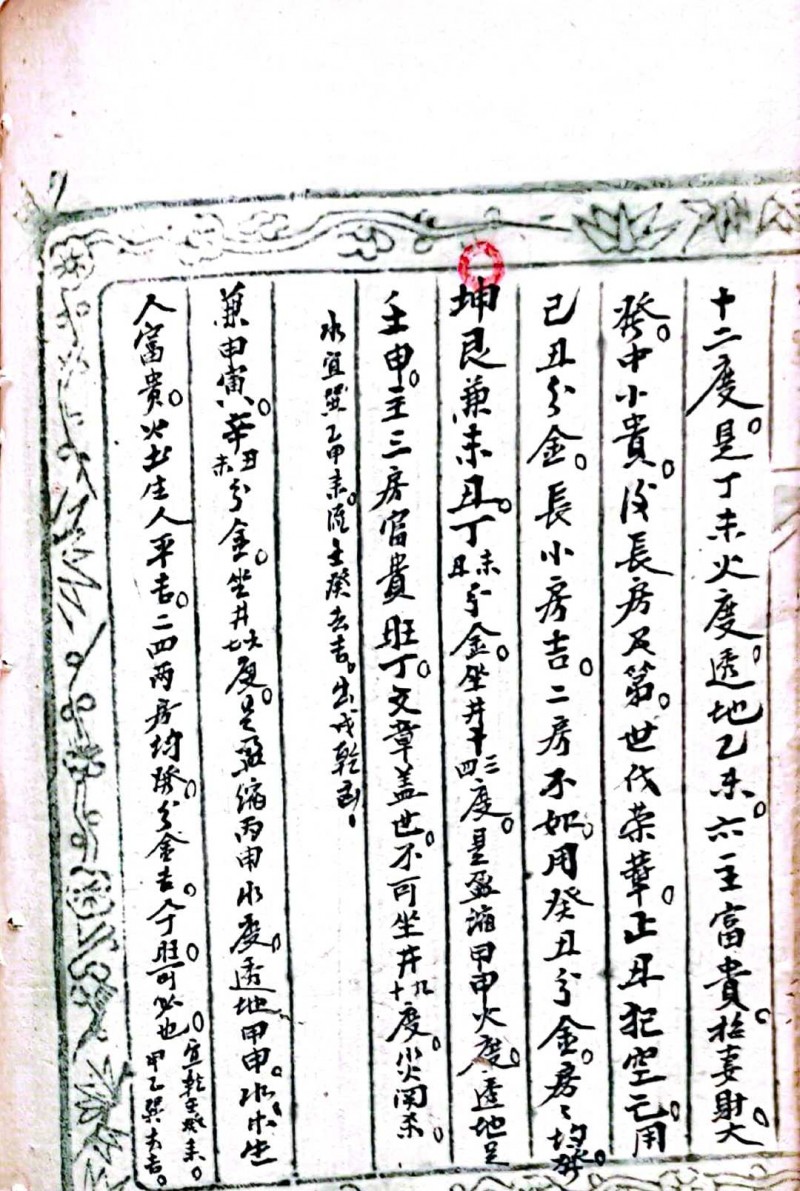 十二度。是丁未火度。透地乙未。亦主富貴。招妻財大
發。中小貴。後長房及第。世代荣華。正丑犯空亡。用
己丑分金。長小房吉。二房不如。用癸丑分金。房〻均發。
坤艮兼未丑。丁未丑分金。坐井十三四度。是盈縮甲申火度。透地是
壬申。主三房富貴旺丁。文章盖世。不可坐井十九度。小火関杀。
水宜巽乙甲来。流壬癸去吉。出戌乾凶。
兼申寅。辛丑未分金。坐井七八度。是盈縮丙申水度。透地甲申。水木生
人富貴。火土生人平吉。二四兩房均發。分金吉。人丁旺可必也。宜乾壬癸來。甲乙巽去吉。